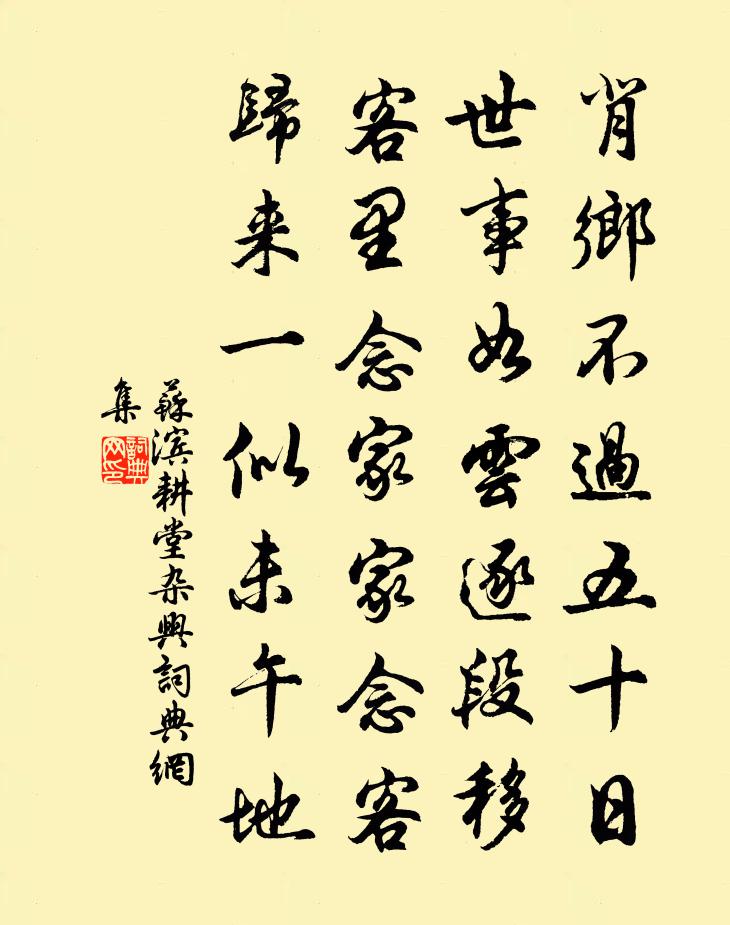 肖鄉不過五十日
世事如雲逐段移
客里念家家念客
歸来一似未午地
蘇滨耕堂杂興詞典網
集
詞典
网印